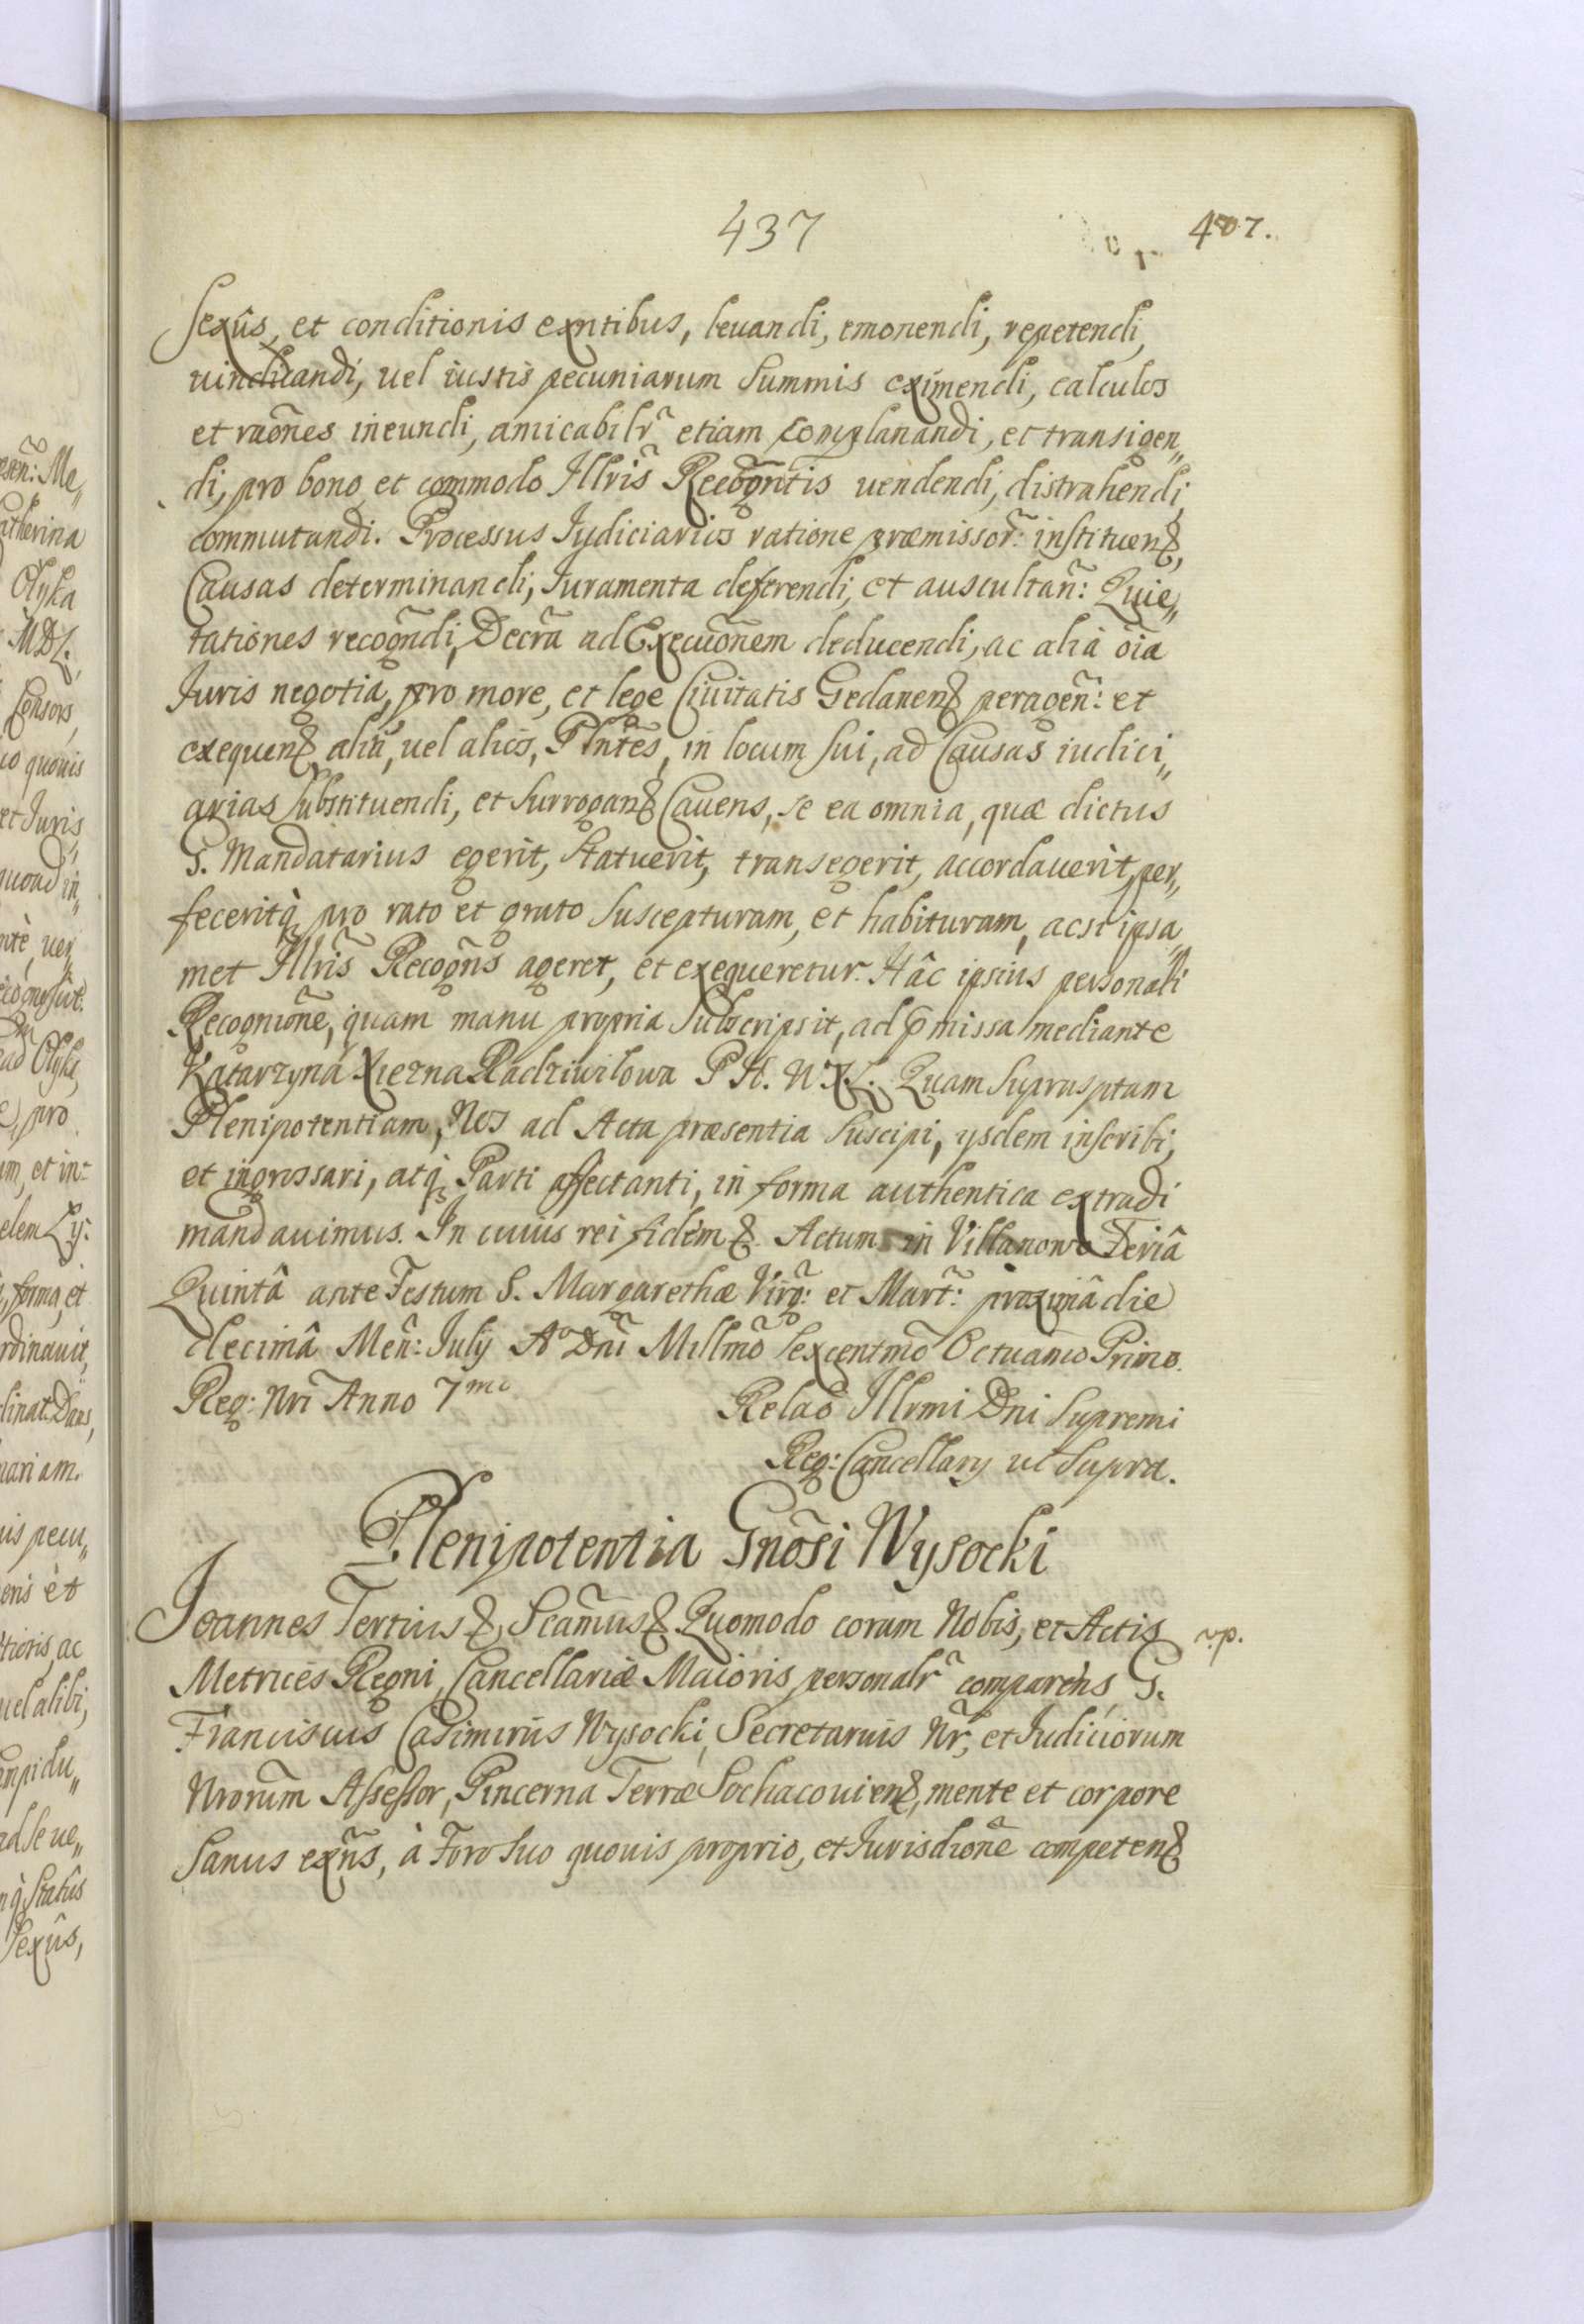 437
407.
Sexûs, et conditionis exntibus, leuandi, emonendi, repetendi,
uindicandi, uel iustis pecuniarum Summis eximendi, calculos
et raões ineundi, amicabilr̃ etiam complanandi, et transigen„
di, pro bono et commodo Illris Recogñtis uendendi, distrahendi,
commutandi. Processus Iudiciarios ratione præmissor̃: instituen&,
Causas determinandi, Iuramenta deferendi, et auscultañ: Quie„
tationes recogñdi, Decrã ad Execuõnem deducendi, ac alia oĩa
Iuris negotia, pro more, et lege Ciuitatis Gedanen& peragen̄: et
exequen& aliũ, uel alios, Plñtes, in locum sui, ad Causas iudici„
arias substituendi, et surrogan& Cauens, se ea omnia, quæ dictus
G. Mandatarius egerit, Statuerit, transegerit, accordauerit, per„
feceritq̀ pro rato et grato suscepturam, et habituram, acsi ipsa„
met Illris̃ Recogñs ageret, et exequeretur. Hâc ipsius personali
Recogniõne, quam manu propria subscripsit, ad p̃missa mediante
Katarzyna Xiezna Radziwilowa P K. W. X. L. Quam suprasptam
Plenipotentiam, Nos ad Acta præsentia suscipi, ysdem inscribi,
et ingrossari, atq̀ Parti affectanti, in forma authentica extradi
mandauimus. In cuius rei fidem &. Actum in Villanowa Feriâ
Quintâ ante Festum S. Margarethæ Virg̃: et Mart̃: proximâ die
decimâ Meñ: July Aº Dñi Millmõ sexcentmõ Octuamo Primo.
Reg: Nri Anno 7mo
Relaõ Illrmi Dni Supremi
Reg: Cancellary ut Supra.
Plenipotentia Gnõsi Wysocki
Joannes Tertius &, Scam̃us & Quomodo coram Nobis, et Actis
Metrices Regni, Cancellariæ Maioris personalr̃ comparens, G.
Franciscus Casimirus Wysocki, Secretarius Nr̃, et Iudiciorum
Nrorum̃ Assessor, Pincerna Terræ Sochacouien&, mente et corpore
Sanus exñs, à Foro suo quouis proprio, et Iurisdiõne competen&